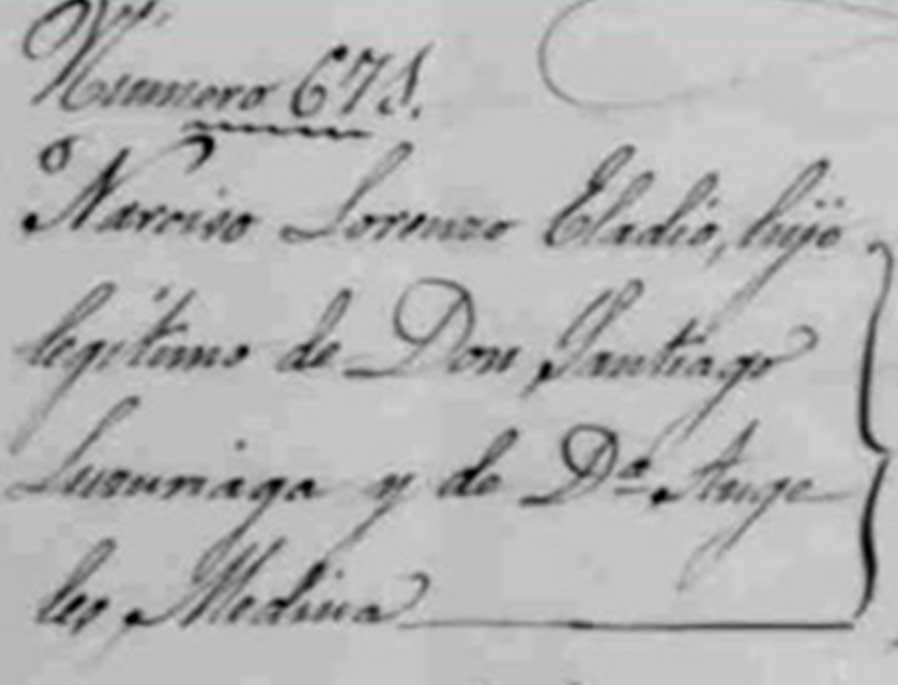 Numero 675.
Narciso Lorenzo Eladio, hijo
legitimo de Don Santiago
Luzuriaga y de Dª Ange
les Medina